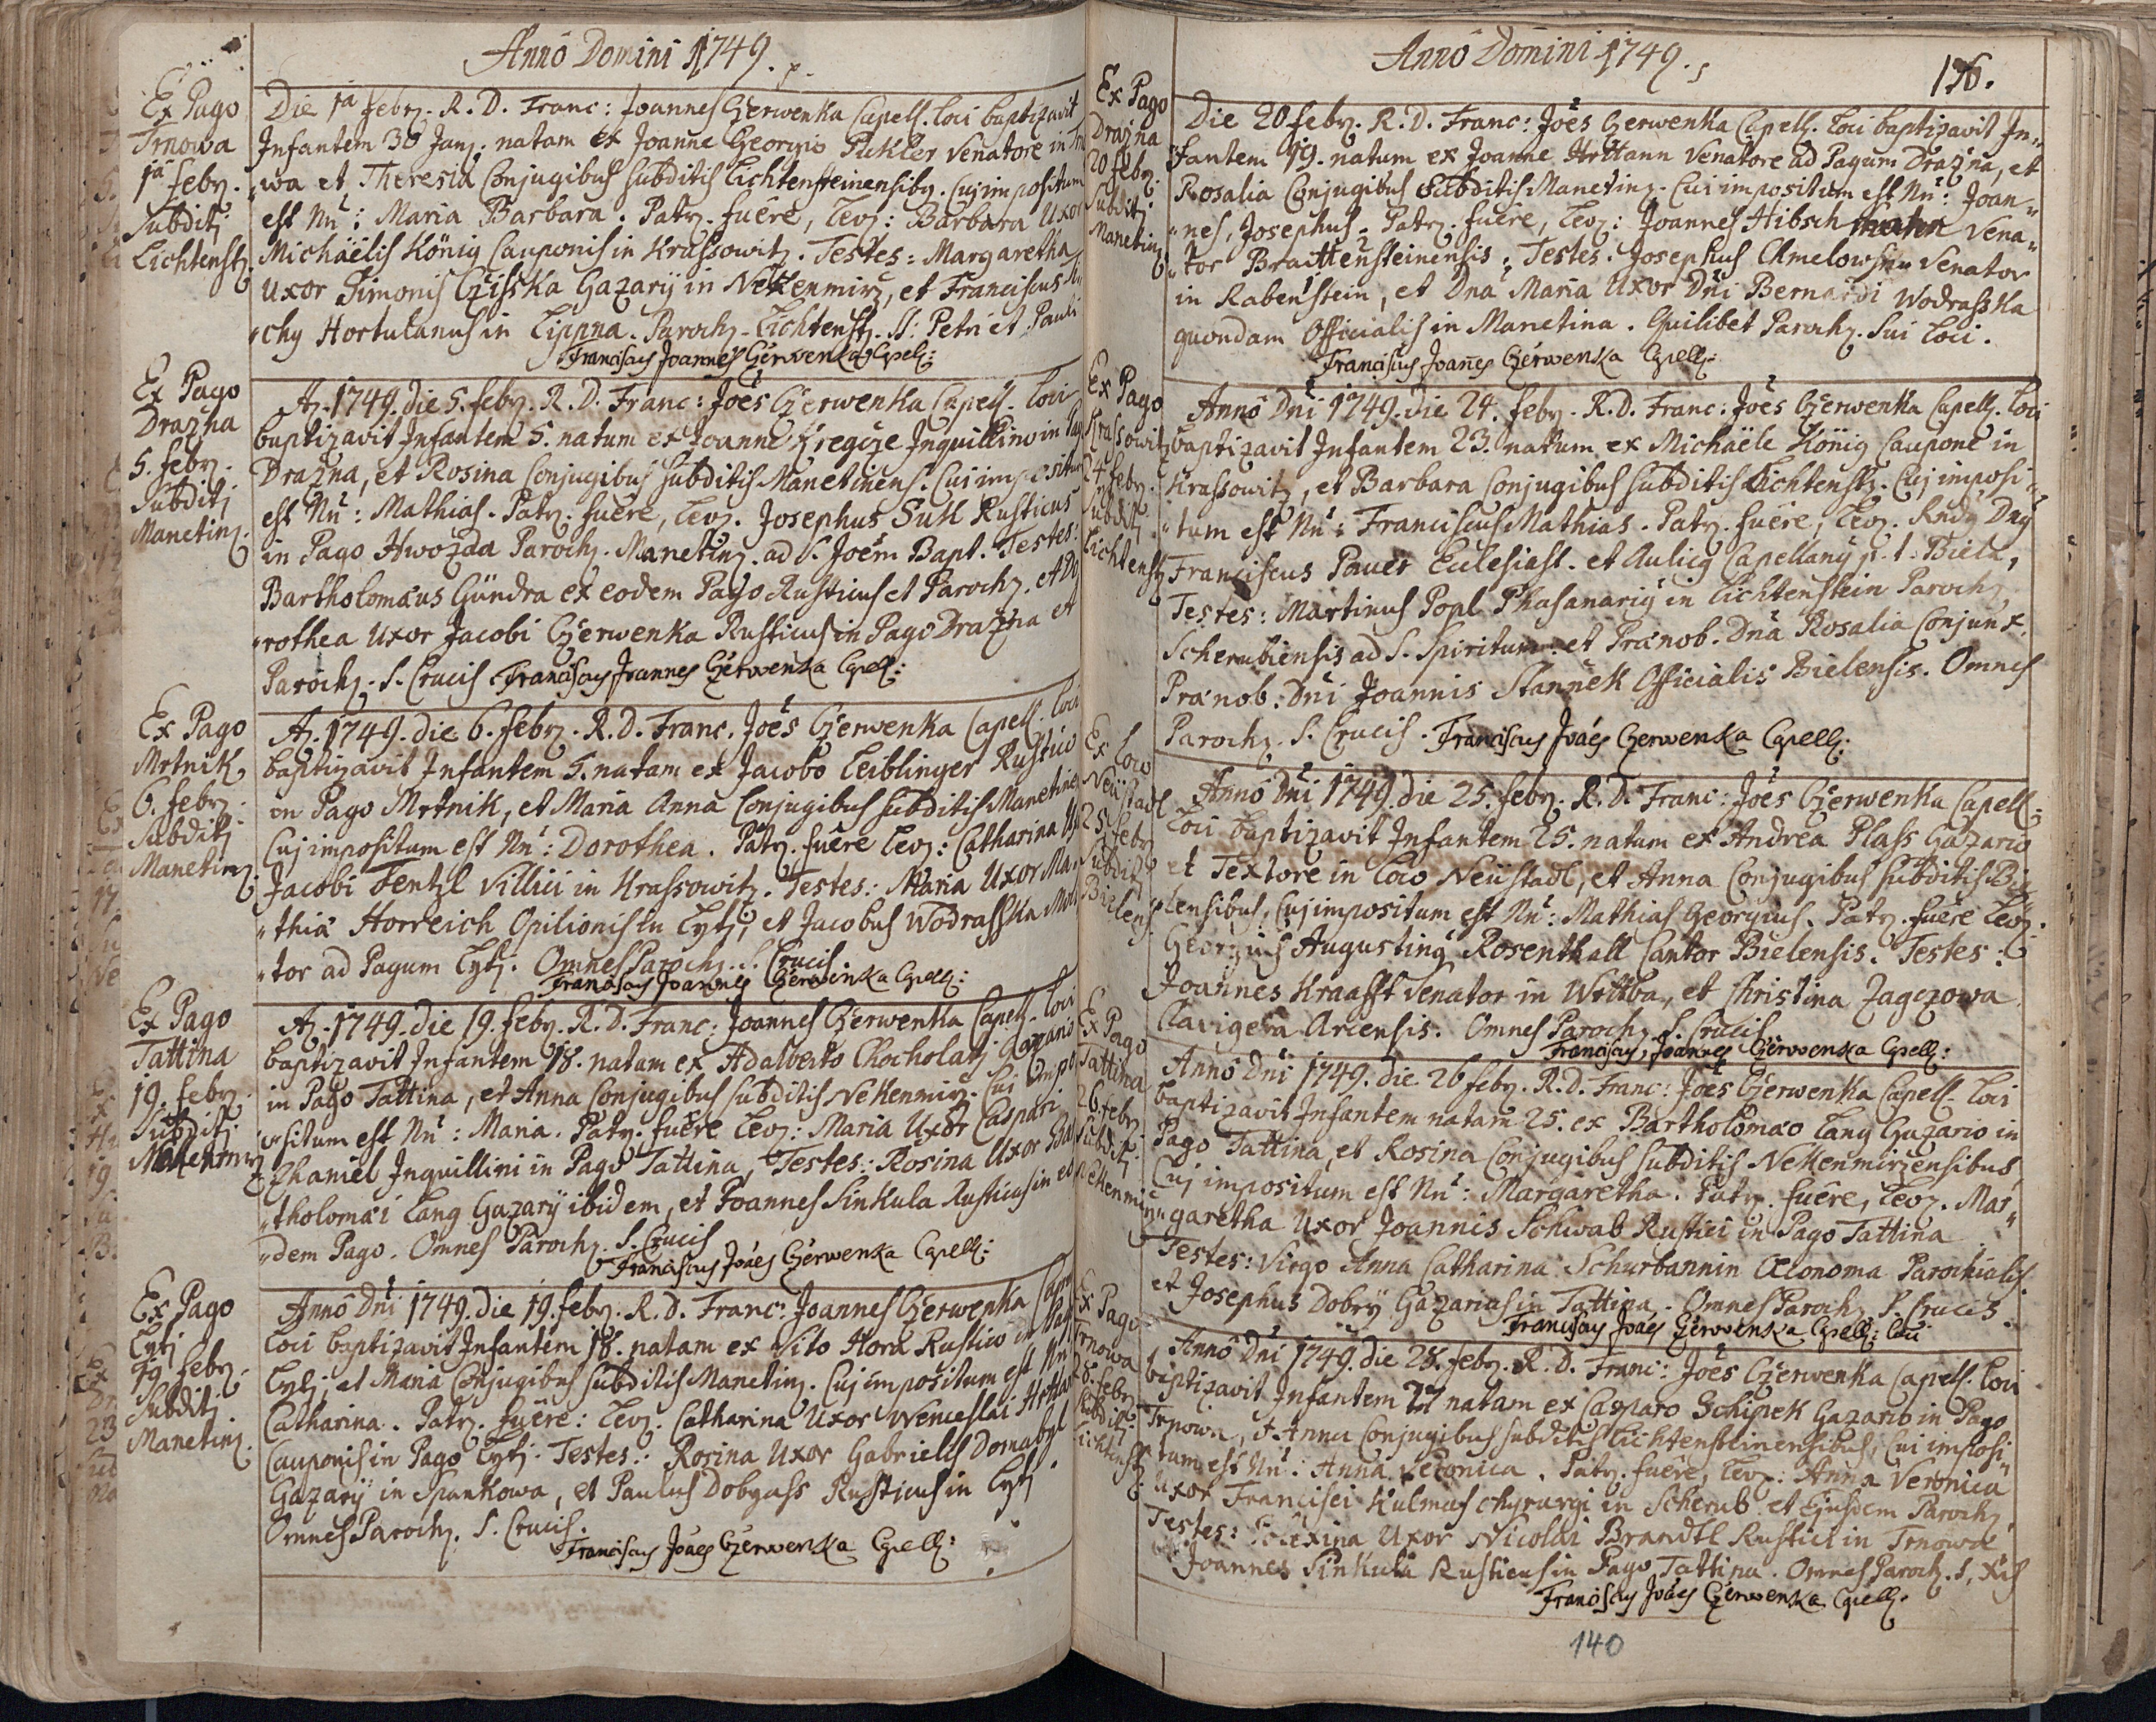 Anno Domini 1749.
Ex Pago
Trnowa
1a febr.
Subditj
Lichtenst.
Die 1a febr. R. D. Franc: Joannes Czerwenka Capell. loci baptizavit
Infantem 30 Janr. natam ex Joanne Georgio Pukler Venatore in
wa et Theresia Conjugibus subditis Lichtensteinensibq. Cuj impositum
est Nn: Maria Barbara. Patr. fuêre, Levz: Barbara Uxor
Michäelis König Cauponis in Krassowitz. Testes: Margaretha
Uxor Simonis Cziska Gazarÿ in Nekenmirz, et Franciscus
chy Hortulanus in Lippna. Paroch. Lichtenst. SS: Petri et Pauli
Franciscus Joannes Czerwenka Capell:
Ex Pago
Drazna
5. febr.
Subditj
Manetinz.
A. 1749. die 5. febr. R. D. Franc: Joês Czerwenka Capell. loci
baptizavit Infantem 5. natum ex Joanne Inquillino in Pag.
Drazna, et Rosina Conjugibus subditis Manetinens. Cui impositum
est Nn: Mathias. Patr. fuêre, Levz. Josephus Rusticus
in Pago Hwozda Paroch. Manetinz. ad S. Joêm Bapt. Testes:
Bartholomæus Gündra ex eodem Pago Rusticus et Paroch. et Do
rothea Uxor Jacobi Czerwenka Rusticus in Pago Drazna et
Paroch. S. Crucis. Franciscus Joannes Czerwenka Capell:
Ex Pago
Mrtnik,
6. febr.
Subditj
Manetinz.
A. 1749. die 6. febr. R. D. Franc. Joês Czerwenka Capell. loci
baptizavit Infantem 5. natam ex Jacobo Leiblinger Rustico
in Pago Mrtnik, et Maria Anna Conjugibus subditis Manetinen
Cuj impositum est Nn: Dorothea. Patr. fuêre Levz: Catharina Ux
Jacobi Fentzl Villici in Krassowitz. Testes: Maria Uxor Ma
„thiæ Horreich Opilionis in Lytj, et Jacobus Wodrasska Moli
„tor ad Pagum Lytj. Omnes Paroch. S. Crucis.
Franciscus Joannes Czerwenka Capell:
Ex Pago
Tattina
19. febr.
Subditj.
A. 1749. die 19. febr. R. D. Franc: Joannes Czerwenka Capell. loci
baptizavit Infantem 18. natam ex Adalberto Chocholatj Gazario
in Pago Tattina, et Anna Conjugibus subditis Nekenmirz. Cui impo
„situm est Nn: Maria. Patr. fuêre Levz: Maria Uxor Caspari
Zhaniel Inquillini in Pago Tattina, Testes: Rosina Uxor Bar
„tholomæi Lang Gazarÿ ibidem, et Joannes Sinkula Rusticus in eo
„dem Pago. Omnes Paroch. S. Crucis
Franciscus Joães Czerwenka Capell:
Ex Pago
Lytj
19. febr.
Subditj
Manetinz.
Anno Dni 1749. die 19. febr. R. D. Franc: Joannes Czerwenka Cape
loci baptizavit Infantem 18. natam ex Vito Hora Rustico in Pag
Lytj, et Maria Conjugibus subditis Manetinz. Cuj impositum est Nn
Catharina. Patr. fuêre: Levz. Catharina Uxor Wenceslai
Cauponis in Pago Lytj. Testes: Rosina Uxor Gabrielis Domabyl
Gazarÿ in Spankowa, et Paulus Dobyass Rusticus in Lytj.
Omnes Paroch. S. Crucis.
Franciscus Joães Czerwenka Capell:
Anno Domini 1749.
136.
Ex Pago
Drazna
20 febr.
Subditj
Manetinz
Die 20. febr. R. D. Franc: Joês Czerwenka Capell. loci baptizavit In„
„fantem 19. natum ex Joanne Hrttann Venatore ad Pagum Drazna, et
Rosalia Conjugibus subditis Manetinz. Cui impositum est Nn: Joan„
„nes, Josephus. Patr. fuêre, Levz: Joannes Hibsch Vena„
„tor Braittensteinensis, Testes. Josephus Venator
in Rabenstein, et Dna Maria Uxor Dni Bernardi Wodrasska
quondam Officialis in Manetina. Quilibet Paroch. sui loci.
Franciscus Joanes Czerwenka Capell:
Ex Pago
Krassowitz
24 febr.
Subditj
Lichtenst
Anno Dni 1749. die 24. febr. R. D. Franc: Joês Czerwenka Capell. loci
baptizavit Infantem 23. natum ex Michäele König Caupone in
Krassowitz, et Barbara Conjugibus subditis Lichtenst. Cuj imposi„
„tum est Nn: Franciscus Mathias. Patr. fuêre, Levz. Rndq Dnq
Franciscus Pauer Ecclesiast. et Aulicq Capellanq p. t. Bielæ,
Testes: Martinus Popl Phasanariq in Lichtenstein Paroch.
Scherubiensis ad S. Spiritum et Prænob. Dna Rosalia Conjunx
Prænob. Dni Joannis Stannek Officialis Bielensis. Omnes
Paroch. S. Crucis. Franciscus Joães Czerwenka Capell:
Ex loco
Neüstadl
25 febr
Subditj
Bielens.
Anno Dni 1749. die 25. febr. R. D. Franc: Joês Czerwenka Capell:
loci baptizavit Infantem 25. natum ex Andrea Plass Gazario
et Textore in loco Neüstadl, et Anna Conjugibus subditis Bie
lensibus, Cuj impositum est Nn: Mathias Georgius. Patr. fuêre Levz.
Georgius Augustinq Rosenthall Cantor Bielensis. Testes:
Joannes Kraafft Venator in Wrttba, et Christina Zagczowa
Clavigera Arcensis. Omnes Paroch. S. Crucis
Franciscus Joannes Czerwenka Capell:
Ex Pago
Tattina
26. febr.
Subditj
Nekenmirz
Anno Dni 1749. die 26 febr. R. D. Franc: Joês Czerwenka Capell. loci
baptizavit Infantem natam 25. ex Bartholomæo Lang Gazario in
Pago Tattina, et Rosina Conjugibus subditis Nekenmirzensibus,
Cuj impositum est Nn: Margaretha. Patr. fuêre, Levz. Mar„
„garetha Uxor Joannis Schwab Rustici in Pago Tattina
Testes: Virgo Anna Catharina Schurbannin Œconoma Parochialis
et Josephus Dobrÿ Gazarius in Tattina. Omnes Paroch. S. Crucis.
Franciscus Joães Czerwenka Capell: loci
Ex Pago
Trnowa
28. febr.
Subditj
Lichtenst
Anno Dni 1749. die 28. febr. R. D. Franc: Joês Czerwenka Capell. loci
baptizavit Infantem natam ex Casparo Schipek Gazario in Pago
Trnowa, et Anna Conjugibus subditis Lichtensteinensibus, Cui imposi„
„tum est Nn: Anna Veronica. Patr. fuêre, Levz: Anna Veronica
Uxor Francisci Kulmas Chyrurgi in Scherub et Ejusdem Paroch.
Testes: Uxor Nicolai Brandtl Rustici in Trnowa
Joannes Sinkula Rusticus in Pago Tattina. Omnes Paroch. S. Xis
Franciscus Joães Czerwenka Capell.
140